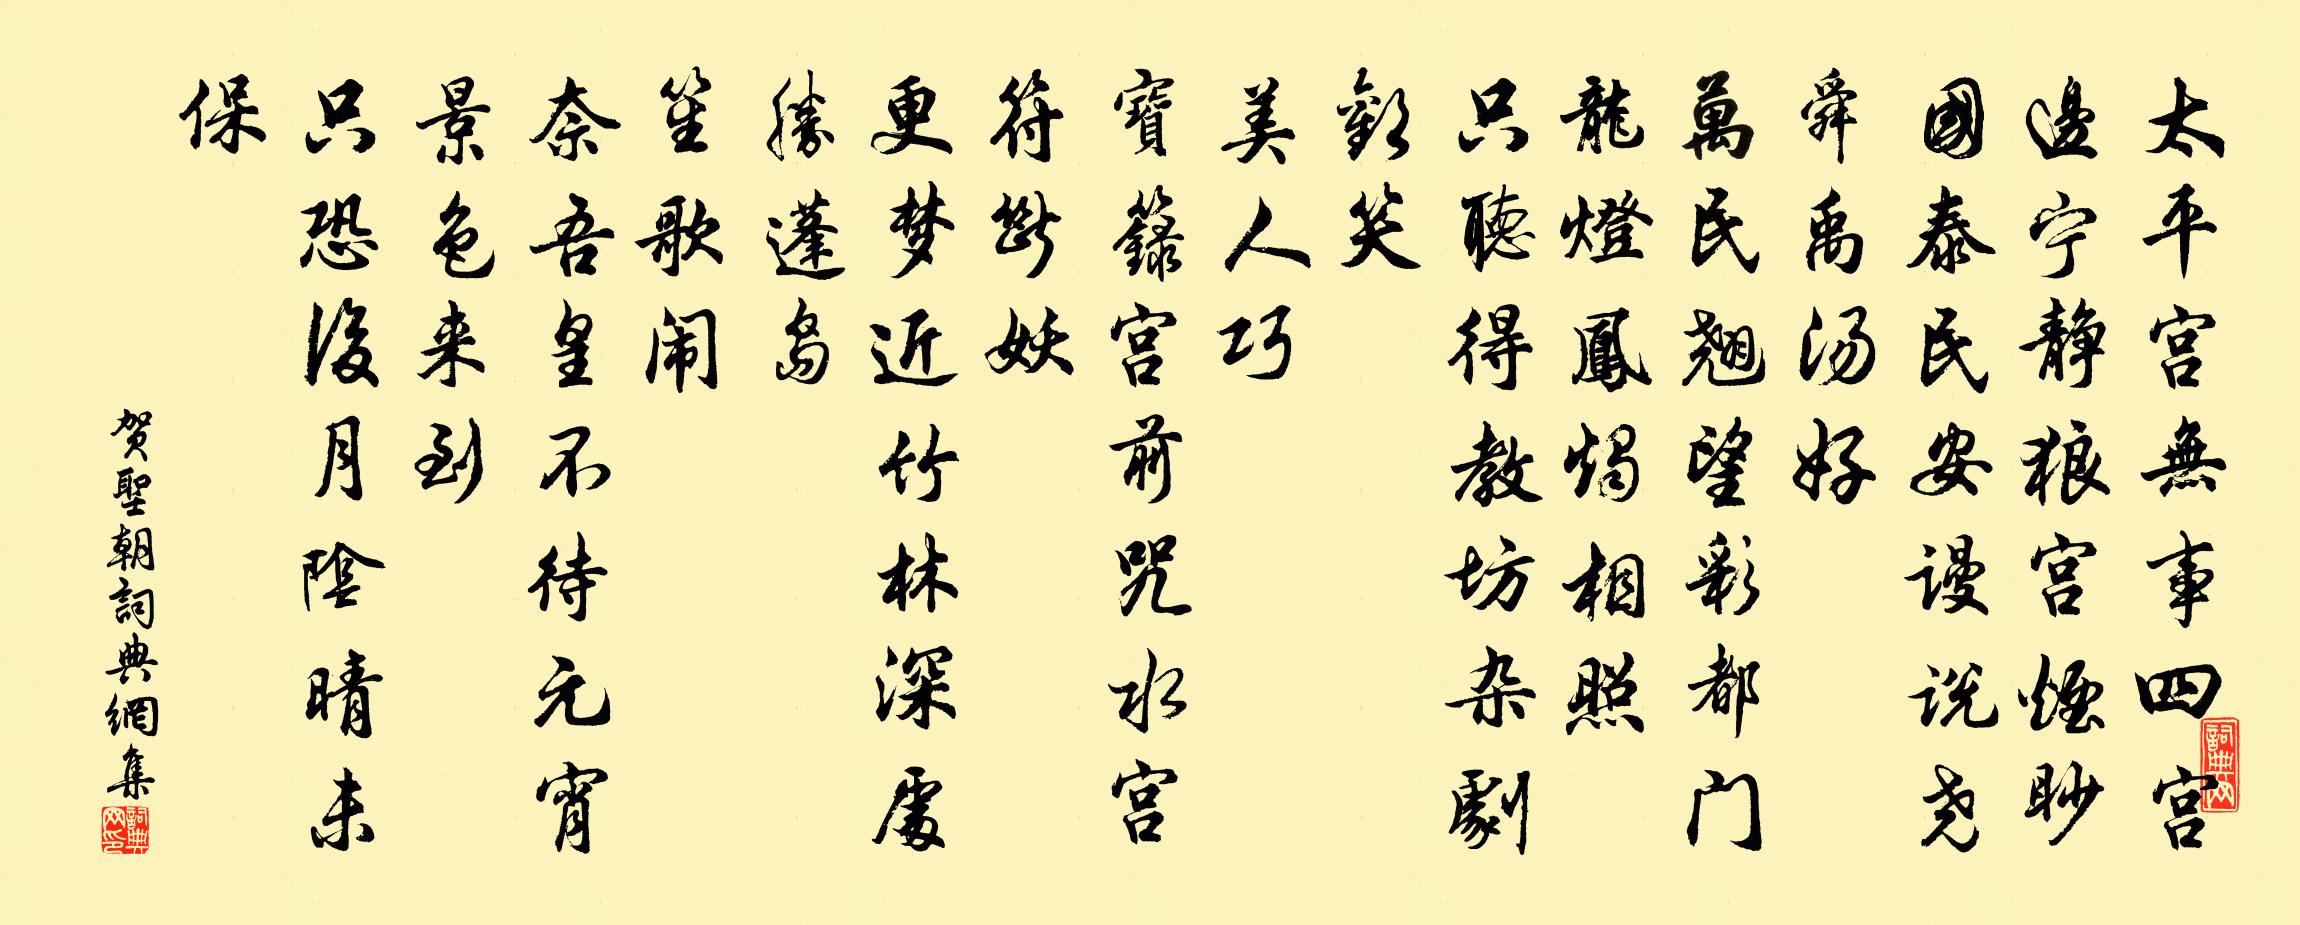 太平宫無事四宫
邊宁静狼宫煙眇
國泰民安謾说尧
舜禹汤好
萬民翘望彩都门
龍燈鳳燭相照
只聽得教坊杂劇
歡笑
美人巧
寶籙宫前咒水宫
符斷妖
更梦近竹林深處
勝蓬岛
笙歌闹
奈吾皇不待元宵
景色来到
只恐後月陰晴未
保
贺聖朝詞典網集
詞典网
詞典网印